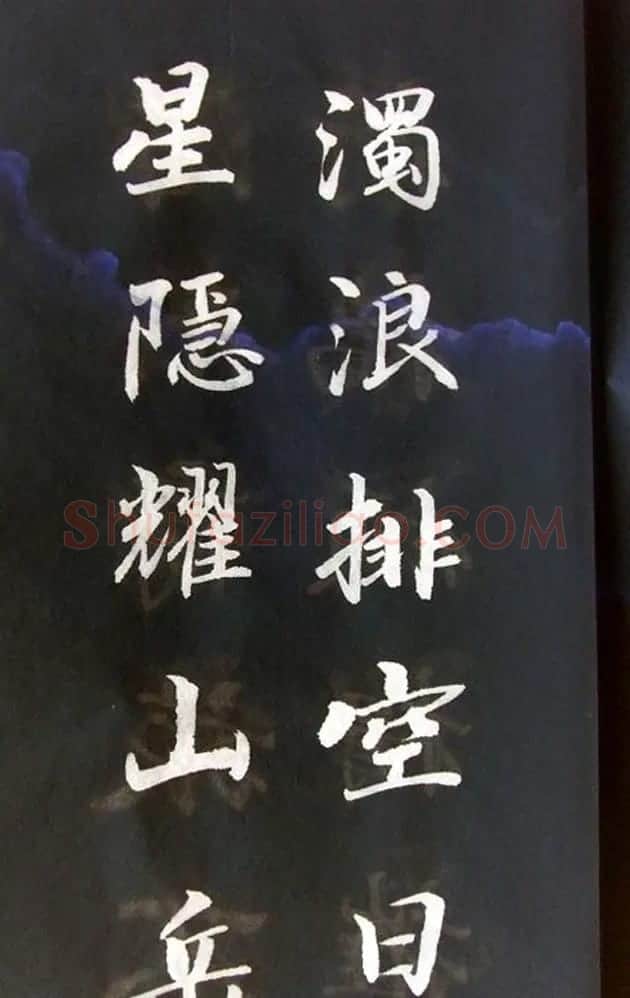 濁浪排空日
星隠耀山岳
Shufaziliao.COM